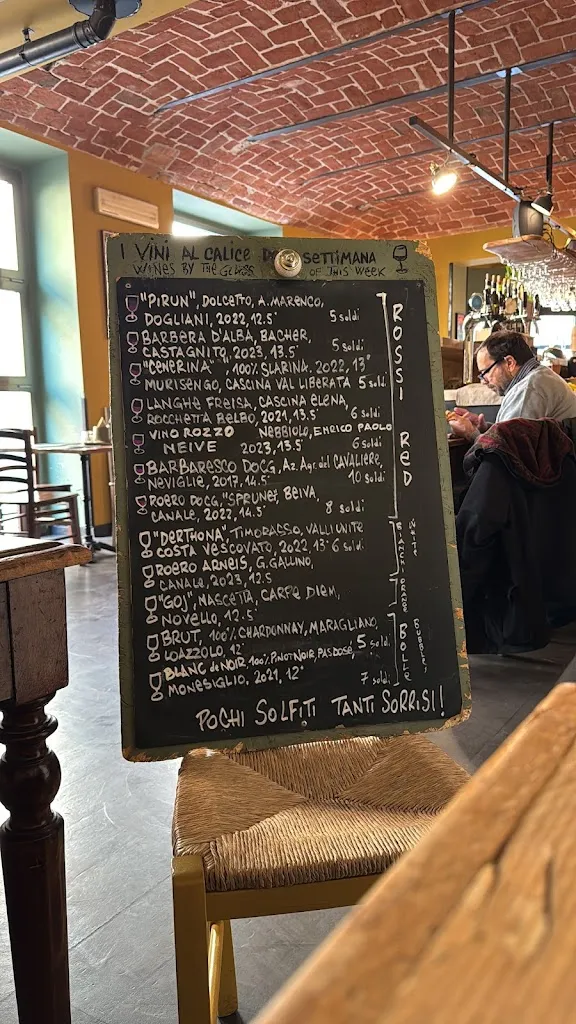 I VINI AL CALICE DELLA SETTIMANA
WINES BY THE GLASS OF THIS WEEK
"PIRUN", DOLCETTO, A. MARENCO,
DOGLIANI, 2022, 12.5° 5 soldi
BARBERA D'ALBA, BACHER,
CASTAGNITO, 2023, 13.5° 5 soldi
"CENERINA" 100% SLARINA. 2022, 13°
MURISENGO, CASCINA VAL LIBERATA 5 soldi
LANGHE FREISA, CASCINA ELENA,
ROCCHETTA BELBO, 2021, 13.5° 6 soldi
VINO ROZZO NEBBIOLO, ENRICO PAOLO
NEIVE 2023, 13.5° 6 soldi
BARBARESCO DOCG, Az. Agr. del CAVALIERE,
NEVIGLIE, 2017, 14.5° 10 soldi
ROERO DOCG, "SPRUNE", BEIVA,
CANALE, 2022, 14.5° 8 soldi
ROSSI RED
"DERTHONA", TIMORASSO, VALLI UNITE
COSTA VESCOVATO, 2022, 13° 6 soldi
ROERO ARNEIS, G. GALLINO,
CANALE, 2023, 12.5
BIANCHI WHITE
"GOJ", NASCETTA, CARPE DIEM,
NOVELLO, 12.5°
ORANGE
BRUT, 100% CHARDONNAY, MARAGLIANO,
LOAZZOLO, 12° 5 soldi
BLANC de NOIR 100% PINOT NOIR, PAS DOSÉ,
MONESIGLIO, 2021, 12° 7 soldi
BOLLE BUBBLES
POCHI SOLFITI TANTI SORRISI!